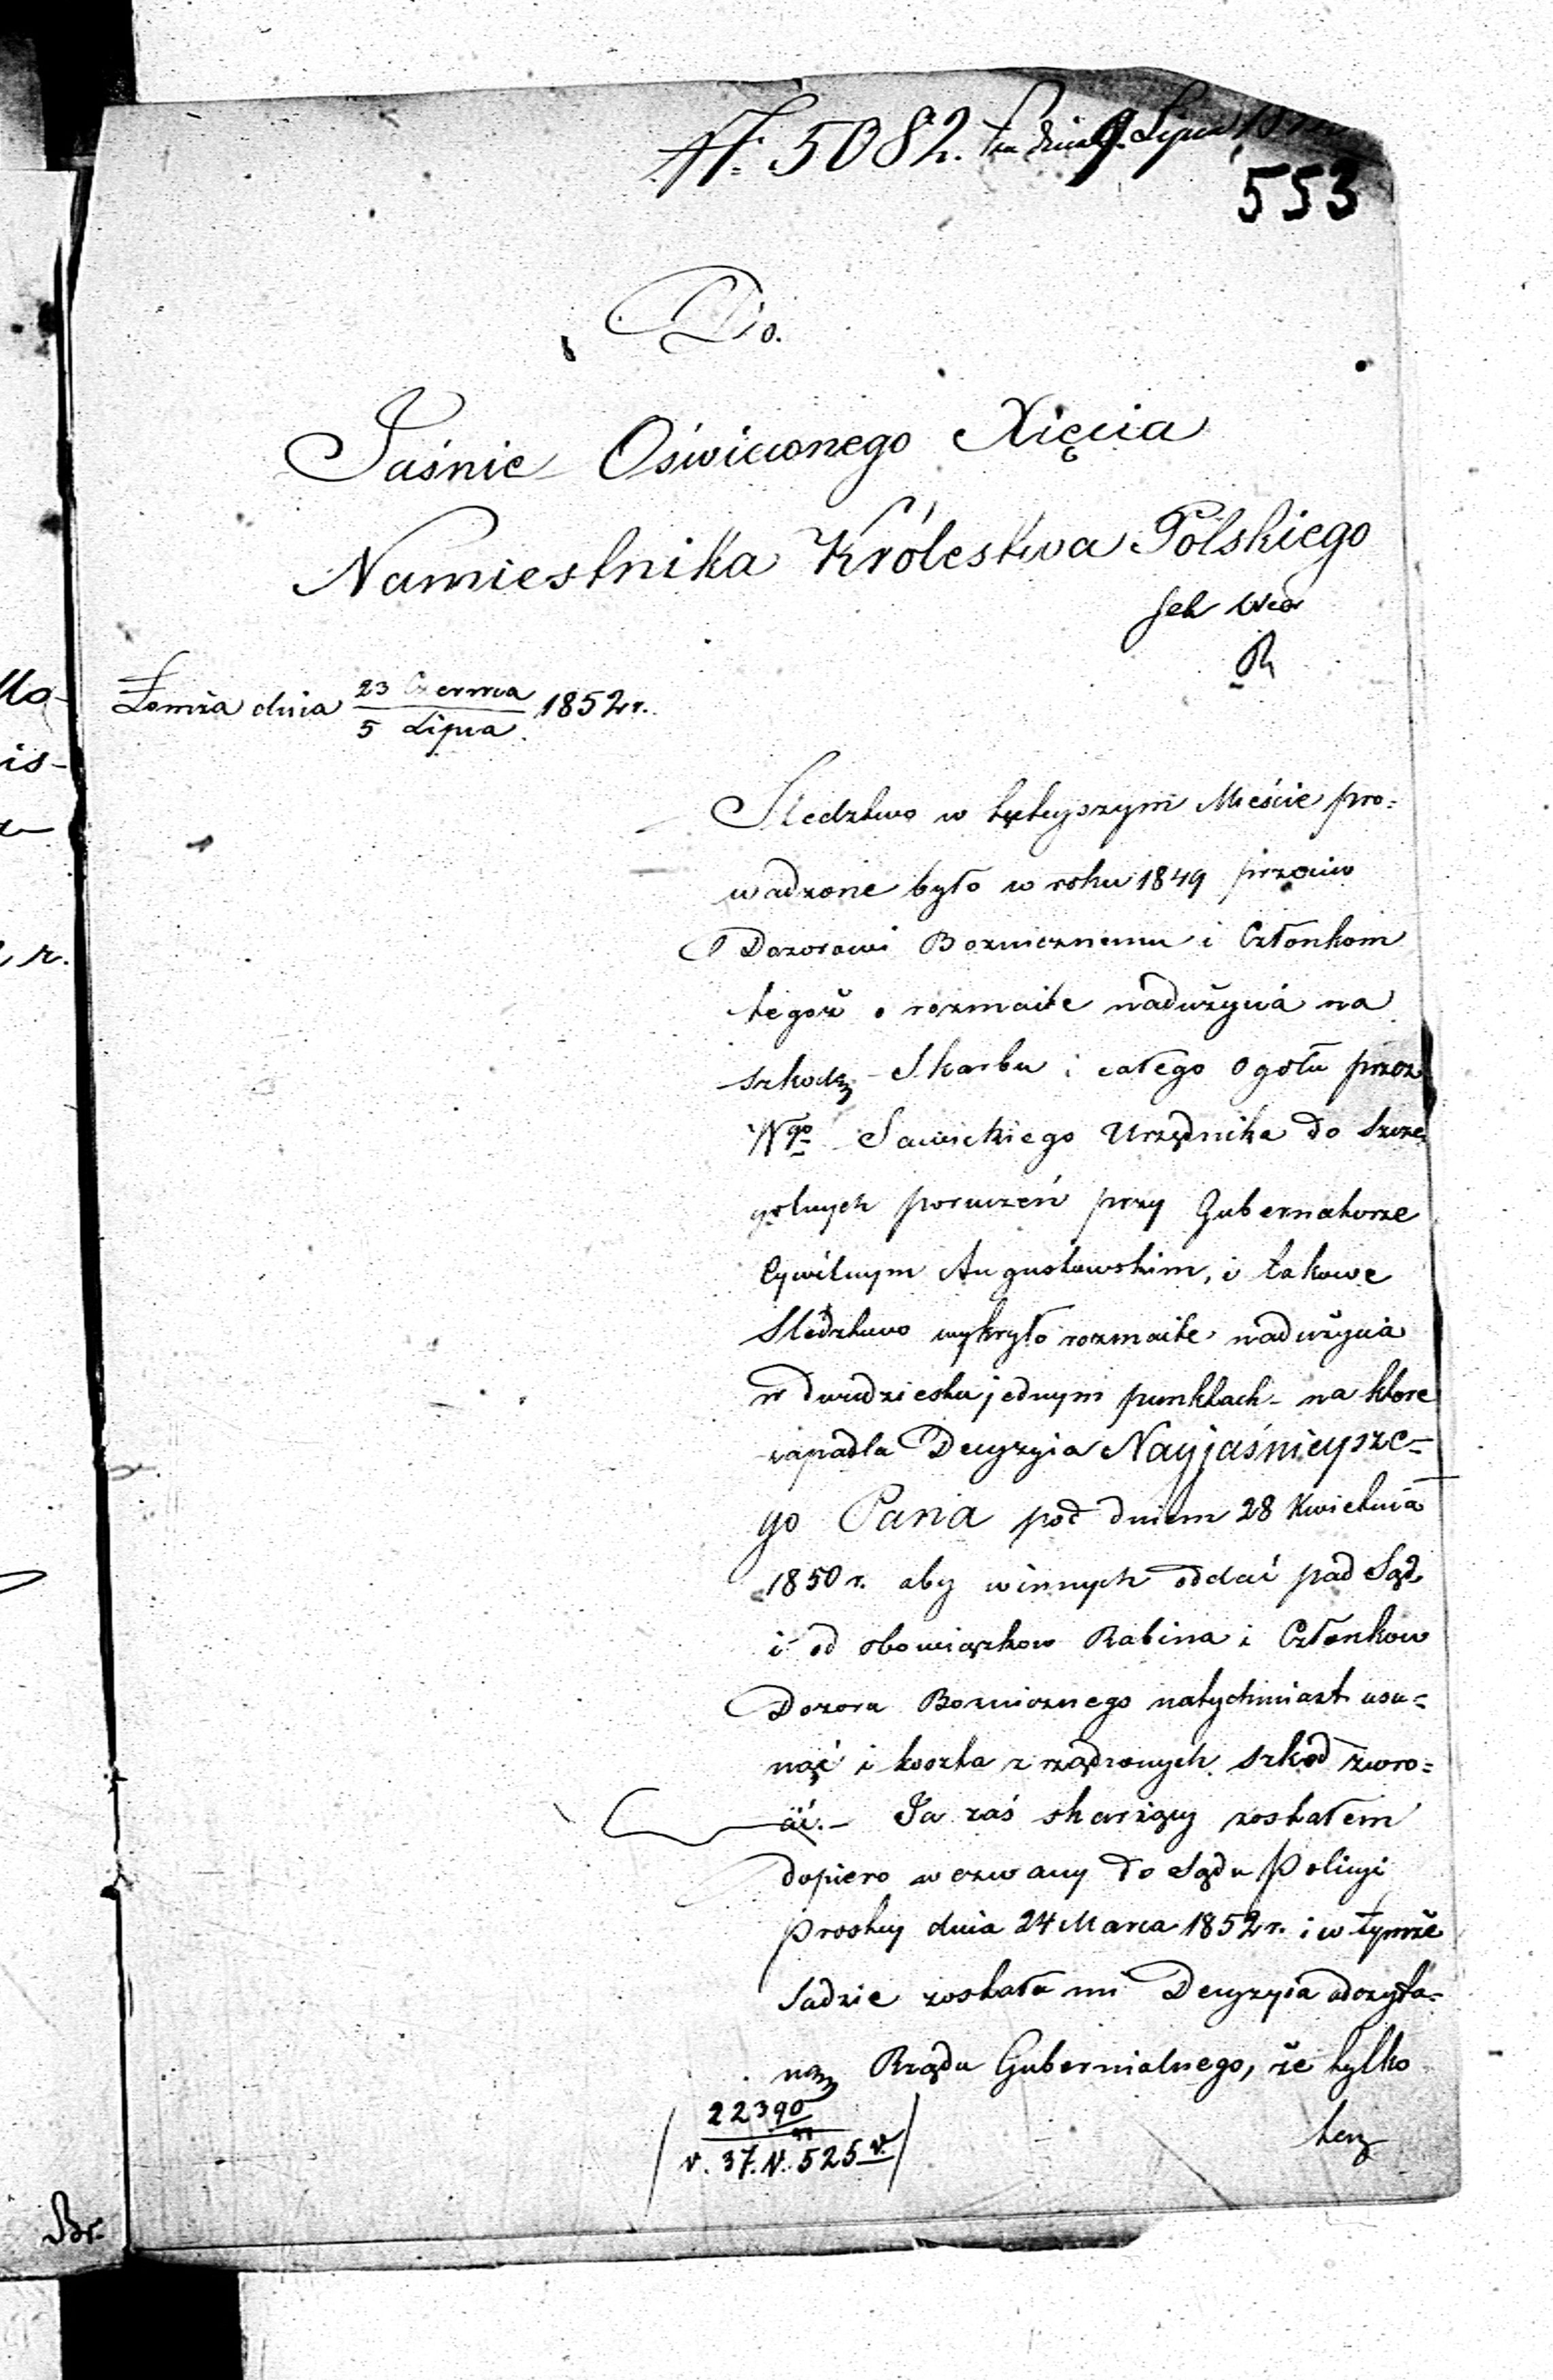 № 5082. 9 Lipca
553
Do.
Jaśnie Oświeconego Xięcia
Namiestnika Królestwa Polskiego
Łomża dnia 23 Czerwca / 5 Lipca 1852 r.
Sledztwo w tutejszym Mieście pro=
wadzone było w roku 1849 przeciw
Dozorowi Boznicznemu i Członkom
tegoż o rozmaite nadużycia na
szkodę Skarbu i całego Ogołu przez
Wgo Sawickiego Urzędnika do Szcze
golnych poruczeń przy Gubernatorze
Cywilnym Augustowskim, i takowe
Sledztwo wykryło rozmaite nadużycia
w dwudziestu jednym punktach - na ktore
zapadla Decyzyia Nayjaśnieysze-
go Pana pod dniem 28 Kwietnia
1850 r. aby winnych oddać pod Sąd
i od obowiązkow Rabina i Członkow
Dozoru Boznicznego natychmiast usu=
nąć i koszta zrządzonych szkod zwro=
cić. - Ja zaś skarżący zostałem
dopiero wezwany do Sądu Policyi
Prostey dnia 24 Marca 1852 r. i w tymże
Sadzie została mi Decyzyia odczyta=
ną Rządu Gubernialnego, że tylko
22390
v. 37. N. 525